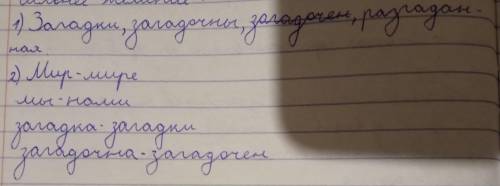 1) Загадки, загадочны, загадочен, разгадан-
ная
2) Мир-мире
мы-нами
загадка-загадки
загадочна-загадочен